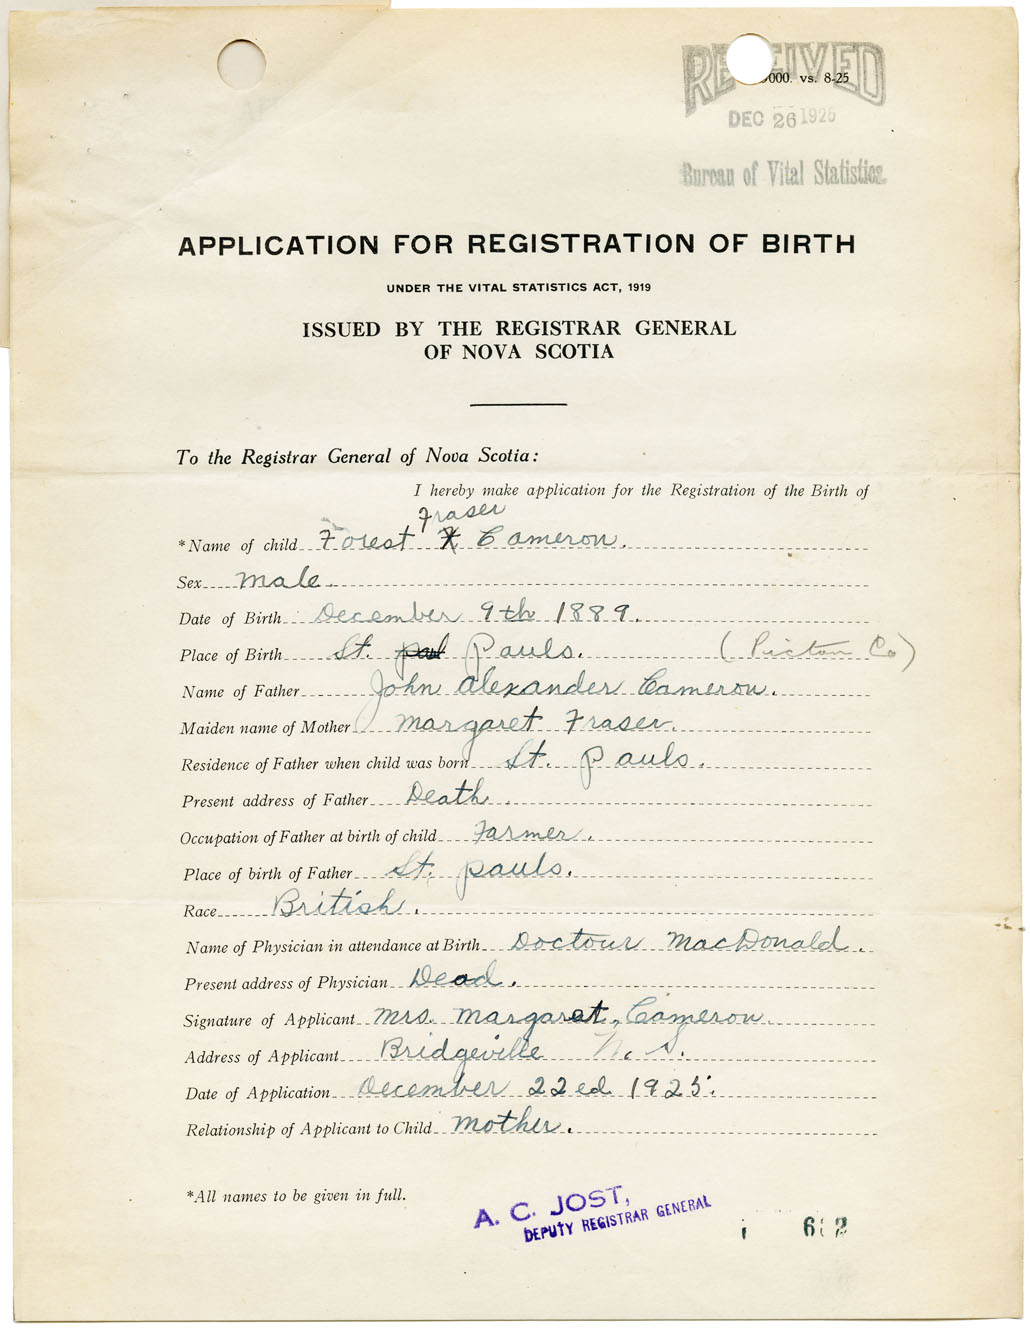 RECEIVED
000. vs. 8-25
DEC 26 1925
Bureau of Vital Statistics.
APPLICATION FOR REGISTRATION OF BIRTH
UNDER THE VITAL STATISTICS ACT, 1919
ISSUED BY THE REGISTRAR GENERAL
OF NOVA SCOTIA
To the Registrar General of Nova Scotia:
I hereby make application for the Registration of the Birth of
Fraser
*Name of child Forest F Cameron.
Sex male.
Date of Birth December 9th 1889.
Place of Birth St. Pauls. (Pictou Co)
Name of Father John Alexander Cameron.
Maiden name of Mother Margaret Fraser.
Residence of Father when child was born St. Pauls.
Present address of Father Death.
Occupation of Father at birth of child Farmer.
Place of birth of Father St. pauls.
Race British.
Name of Physician in attendance at Birth Doctour MacDonald.
Present address of Physician Dead.
Signature of Applicant Mrs. Margaret Cameron
Address of Applicant Bridgeville N. S.
Date of Application December 22ed 1925.
Relationship of Applicant to Child Mother.
*All names to be given in full.
A. C. JOST,
DEPUTY REGISTRAR GENERAL